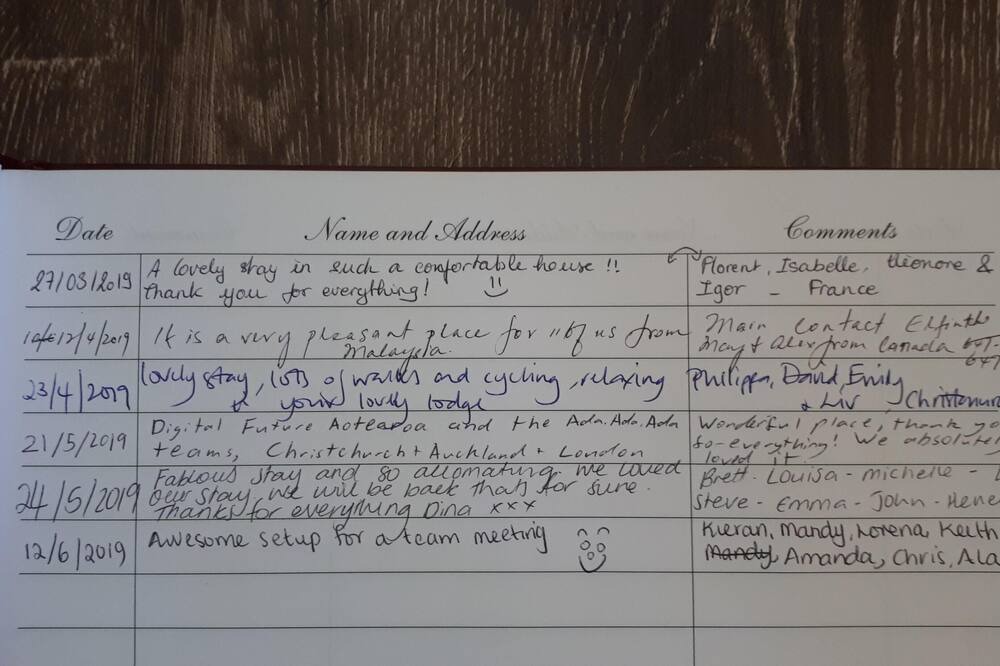 Date Name and Address Comments
27/03/2019 A lovely stay in such a comfortable house !! Florent, Isabelle, Eleonore &
thank you for everything! Igor - France
12/4/2019 It is a very pleasant place for 11 of us from Main Contact
Malaysia. May & Alex from Canada
23/4/2019 lovely stay, lots of walks and cycling, relaxing Philippa, David, Emily
lovely lodge & Liv, Christchurc
21/5/2019 Digital Future Aotearoa and the Ada. Ada. Ada Wonderful place, thank yo
teams, Christchurch + Auckland + London for everything! We absolutel
loved it.
24/5/2019 Fablous stay and so allomating. we loved Brett - Louisa - michelle -
our stay, we will be back thats for sure. Steve - Emma - John - Hene
Thanks for everything Dina xxx
12/6/2019 Awesome setup for a team meeting Kieran, Mandy, Lorena, Keith
Mandy, Amanda, Chris, Ala